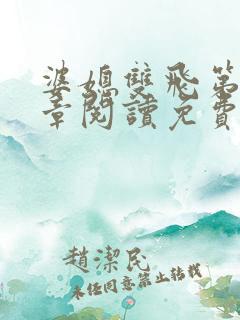 婆媳雙飛第
章閱讀免費
趙潔民
未經同意禁止轉載